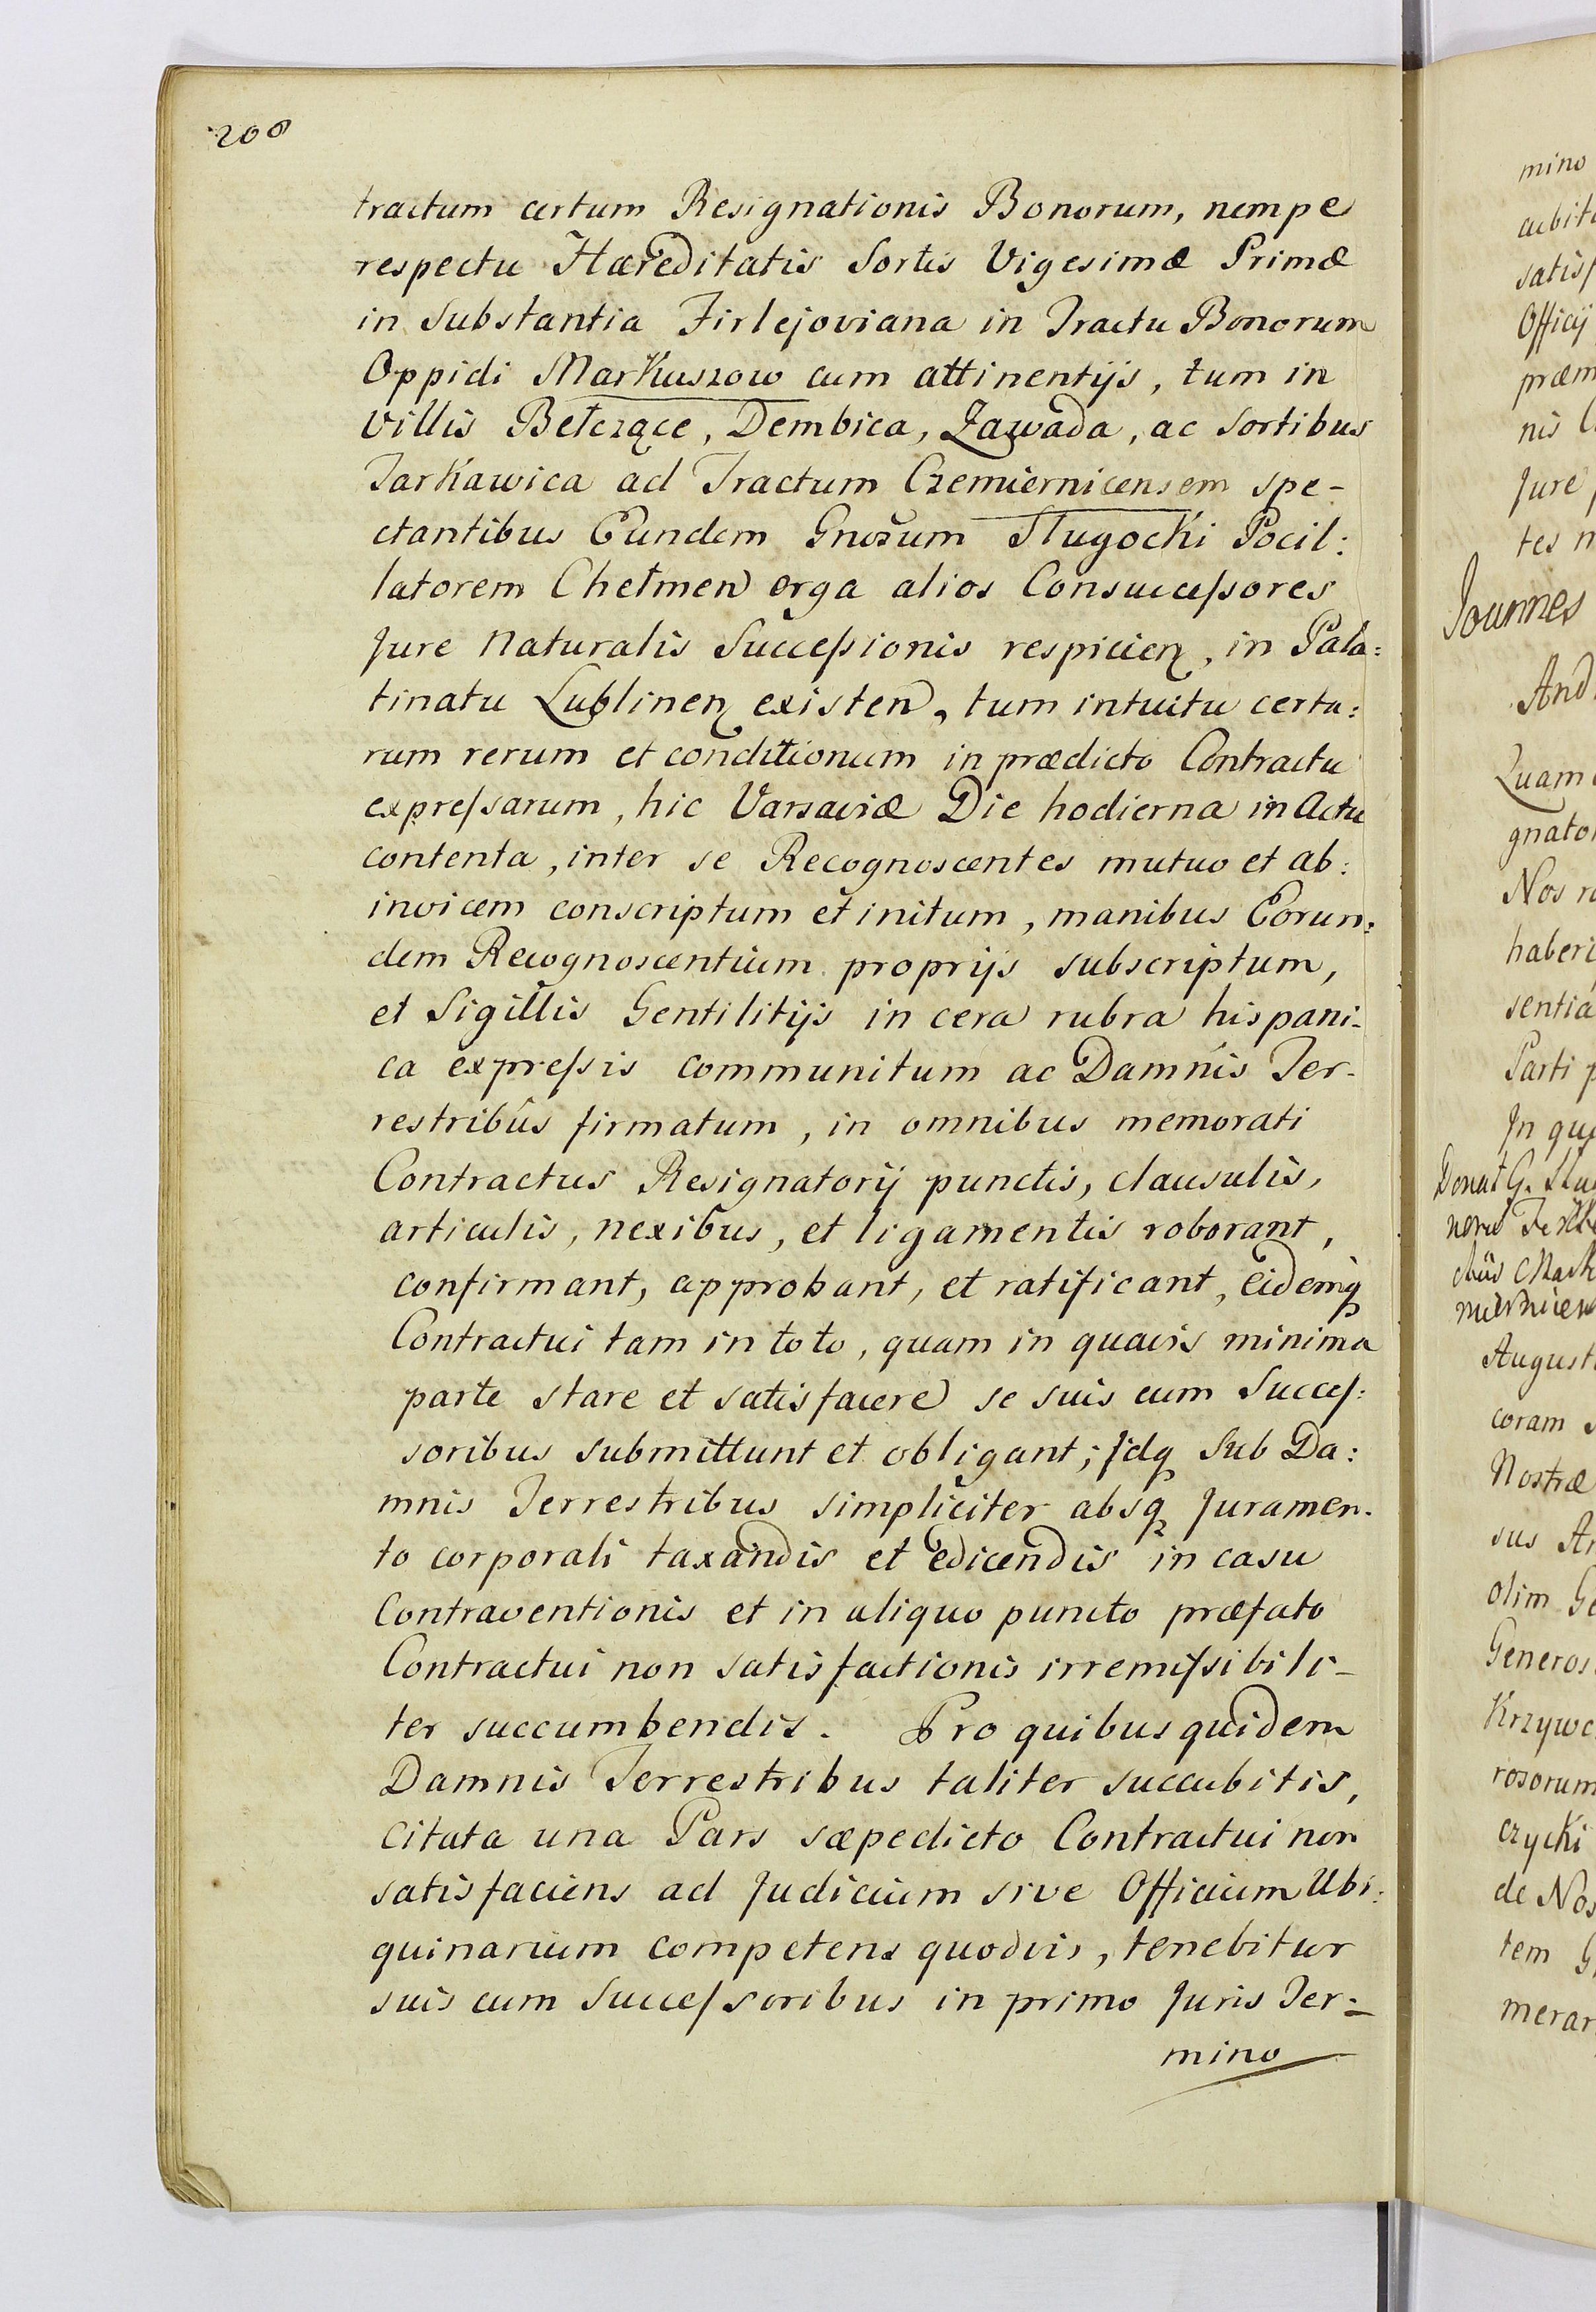 208
tractum certum Resignationis Bonorum, nempe
respectu Hæreditatis Sortis Vigesimæ Primæ
in Substantia Firlejoviana in Tractu Bonorum
Oppidi Markuszow cum attinentijs, tum in
Villis Bełczące, Dembica, Zawada, ac Sortibus
Tarkawica ad Tractum Czemiernicensem spe-
ctantibus Eundem Gnosum Sługocki Pocil:
latorem Chełmen erga alios Consuccessores
Jure Naturalis Successionis respicien, in Pala:
tinatu Lublinen existen, tum intuitu certa:
rum rerum et conditionum in prædicto Contractu
expressarum, hic Varsaviæ Die hodierna in Actu
contenta, inter se Recognoscentes mutuo et ab:
invicem conscriptum et initum, manibus Eorun:
dem Recognoscentium proprijs subscriptum,
et Sigillis Gentilitijs in cera rubra hispani-
ca expressis communitum ac Damnis Ter-
restribus firmatum, in omnibus memorati
Contractus Resignatorij punctis, clausulis,
articulis, nexibus, et ligamentis roborant,
confirmant, approbant, et ratificant, Eidemq
Contractui tam in toto, quam in quavis minima
parte stare et satisfacere se suis cum Succes:
soribus submittunt et obligant; Idq Sub Da:
mnis Terrestribus simpliciter absq Juramen-
to corporali taxandis et edicendis in casu
Contraventionis et in aliquo puncto præfato
Contractui non satisfactionis irremissibili-
ter succumbendis. Pro quibus quidem
Damnis Terrestribus taliter succubitis,
citata una Pars sæpedicto Contractui non
satisfaciens ad Judicium sive Officium Ubi:
quinarium competens quodvis, tenebitur
suis cum Successoribus in primo Juris Ter:
mino
mino
cubit
satisf
Officij
præm
nis
Jure
tes
Joannes
And
Quam
gnato
Nos
haberi
sentia
Parti
In
Donat G.
August
coram
Nostræ
sus
olim
Generos
Krzywc
rosorum
czycki
de Nos
tem
merar